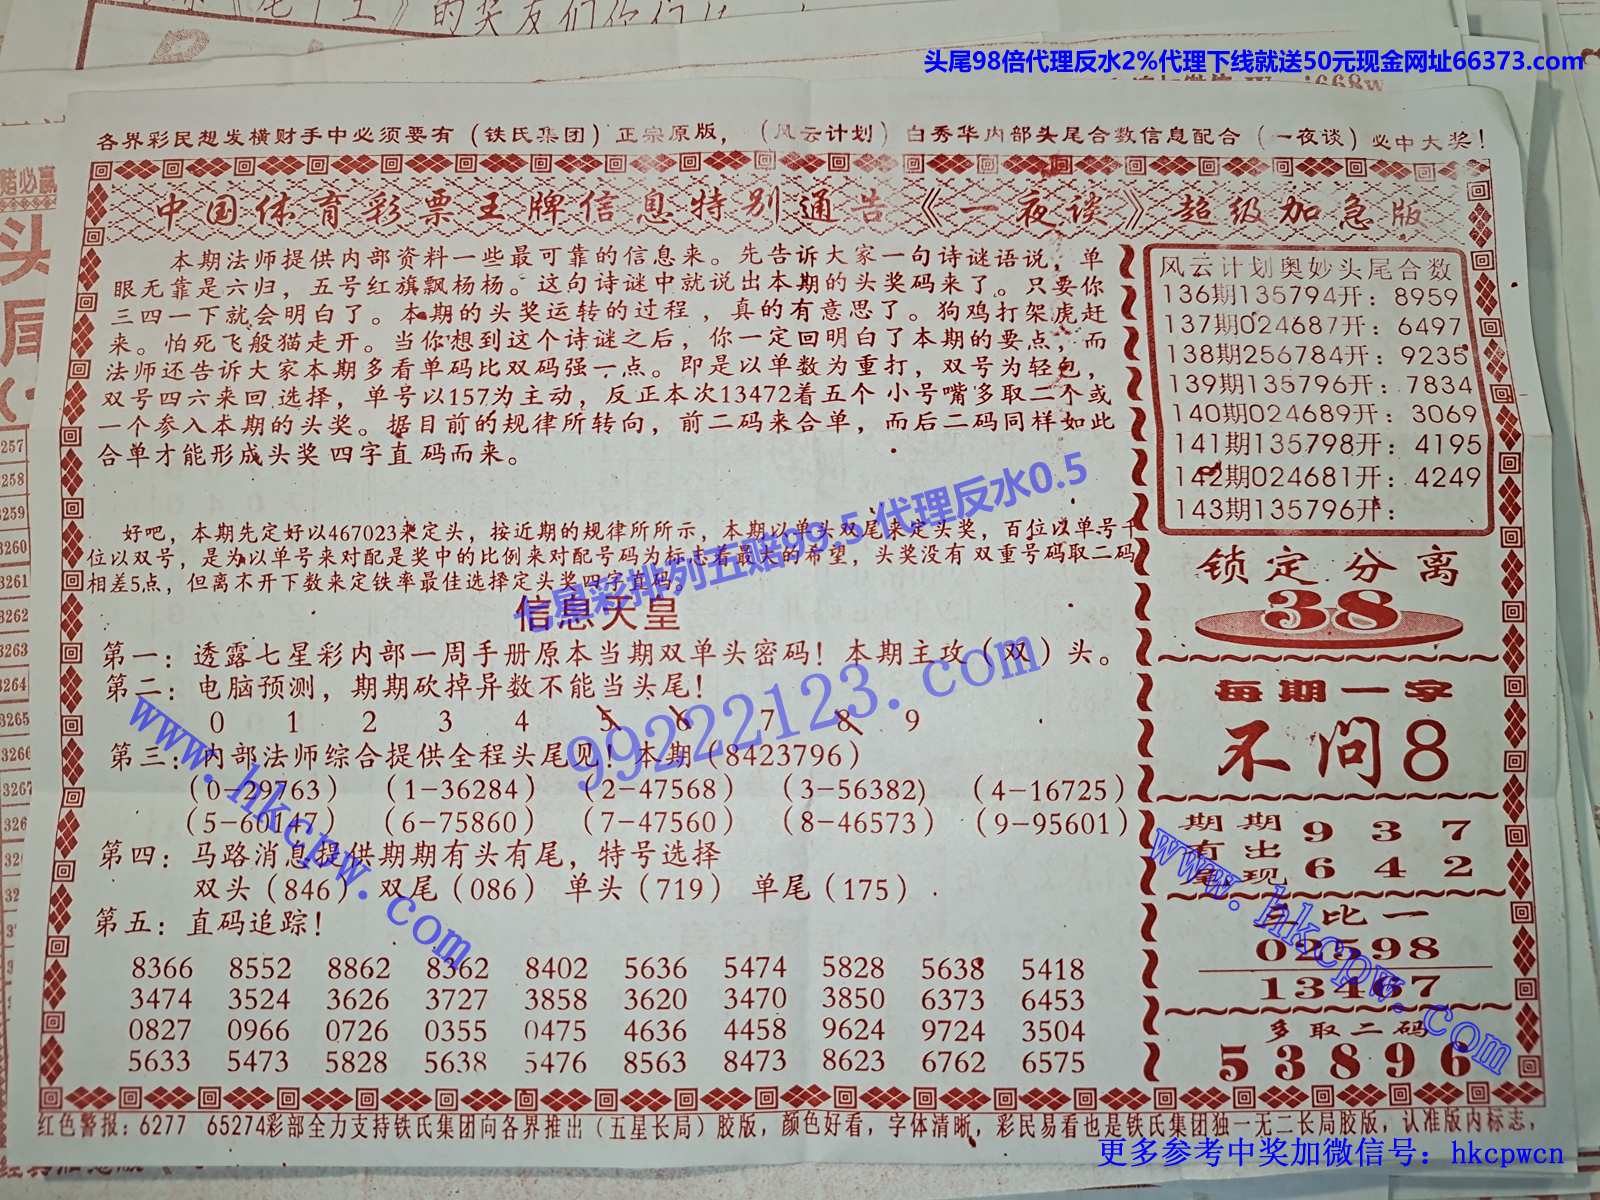 头尾98倍代理反水2%代理下线就送50元现金网址66373.com
各界彩民想发横财手中必须要有（铁氏集团）正宗原版，（风云计划）白秀华内部头尾合数信息配合（一夜谈）必中大奖！
中国体育彩票王牌信息特别通告《一夜谈》超级加急版
本期法师提供内部资料一些最可靠的信息来。先告诉大家一句诗谜语说，单
眼无靠是六归，五号红旗飘杨杨。这句诗谜中就说出本期的头奖码来了。只要你
三四一下就会明白了。本期的头奖运转的过程，真的有意思了。狗鸡打架虎赶
来。怕死飞般猫走开。当你想到这个诗谜之后，你一定回明白了本期的要点，而
法师还告诉大家本期多看单码比双码强一点。即是以单数为重打，双号为轻包，
双号四六来回选择，单号以157为主动，反正本次13472着五个 小号嘴多取二个或
一个参入本期的头奖。据目前的规律所转向，前二码来合单，而后二码同样如此
合单才能形成头奖 四字直 码而来。
好吧，本期先定好以467023来定头，按近期的规律所所示，本期以单头双尾来定头奖，百位以单号千
位以双号，是为以单号来对配是奖中的比例来对配号码为标志着最大的希望，头奖没有 双重号码取二码
相差5点，但离不开下数来定铁率最佳选择定头奖四字直码。
七星彩排列五赔99.5 代理反水0.5
信息天皇
第一：透露七星彩内部一周手册原本当期双单头密码！本期主攻（双）头。
第二：电脑预测，期期砍掉异数不能当头尾！
0 1 2 3 4 5 6 7 8 9
第三：内部法师综合提供全程头尾见！本期（8423796）
（0-29763） （1-36284） （2-47568） （3-56382) （4-16725）
（5-60147） （6-75860） （7-47560） （8-46573） （9-95601）
第四：马路消息提供期期有头有尾，特号选择
双头（846） 双尾（086） 单头（719） 单尾（175）
第五：直码追踪！
8366 8552 8862 8362 8402 5636 5474 5828 5638 5418
3474 3524 3626 3727 3858 3620 3470 3850 6373 6453
0827 0966 0726 0355 0475 4636 4458 9624 9724 3504
5633 5473 5828 5638 5476 8563 8473 8623 6762 6575
风云计划奥妙头尾合数
136期135794开：8959
137期024687开：6497
138期256784开：9235
139期135796开：7834
140期024689开：3069
141期135798开：4195
142期024681开：4249
143期135796开：
锁定分离
38
每期一字
不问8
期期 9 3 7
有出
现 6 4 2
比一
02598
13467
多取二码
53896
99222123.com
www.hkcpw.com
www.hkcpw.com
红色警报：6277 65274彩部全力支持铁氏集团向各界推出（五星长局）胶版，颜色好看，字体清晰，彩民易看也是铁氏集团独一无二长局胶版，认准版内标志，
更多参考中奖加微信号：hkcpwcn
3257
3258
3259
3260
3261
3262
3263
3264
3265